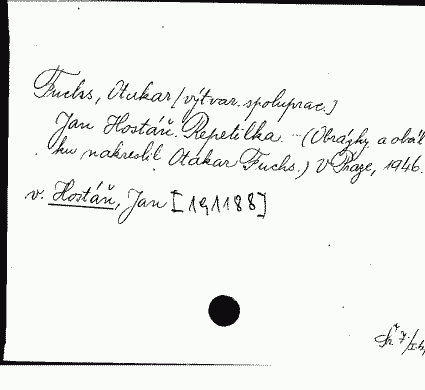 Fuchs, Otakar [výtvar. spoluprac.]
Jan Hostáň: Repetilka. - (Obrázky a obál
ku nakreslil Otakar Fuchs.) V Praze, 1946.
v. Hostáň, Jan [191188]